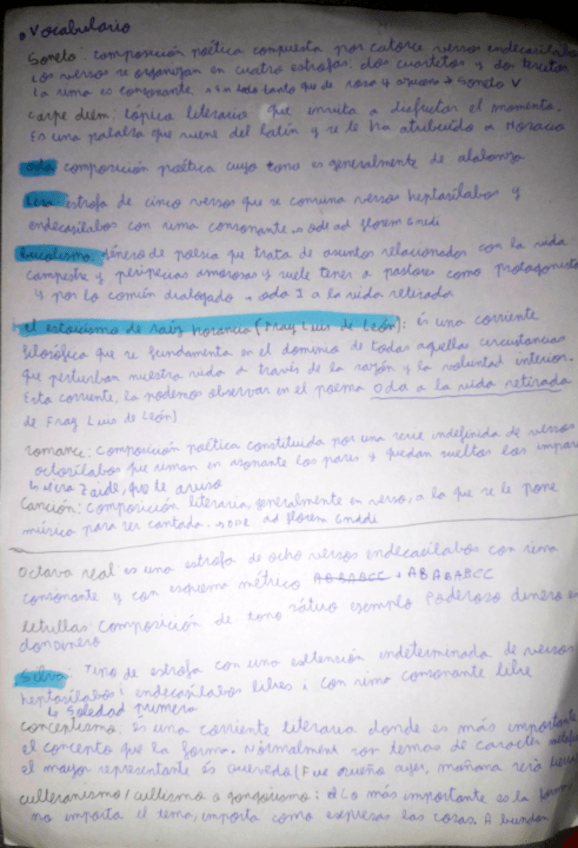 • Vocabulario
Soneto: composición poética compuesta por catorce versos endecasílabos
Los versos se organizan en cuatro estrofas: dos cuartetos y dos tercetos
La rima es consonante. → En tanto que de rosa y azucena → Soneto V
Carpe diem: tópico literario que invita a disfrutar el momento.
Es una palabra que viene del latín y se le ha atribuido a Horacio
Oda composición poética cuyo tono es generalmente de alabanza
Lira estrofa de cinco versos que se combina versos heptasílabos y
endecasílabos con rima consonante. → ode ad florem Gnidi
bucolismo: género de poesía que trata de asuntos relacionados con la vida
campestre y peripecias amorosas y suele tener a pastores como protagonista
y por lo común dialogado → oda I a la vida retirada
el estoicismo de raíz horancia (Fray Luis de León): és una corriente
filosófica que se fundamenta en el dominio de todas aquellas circustancias
que perturban nuestra vida a través de la razón y la voluntad interior.
Esta corriente, la podemos observar en el poema Oda a la vida retirada
de Fray Luis de León)
romance: composición poética constituida por una serie indefinida de versos
octosílabos que riman en asonante los pares y quedan sueltos los impar
↳ Mira Zaide, que te aviso
Canción: Composición literaria, generalmente en verso, a lo que se le pone
música para ser cantada. → ODE ad florem Gnidi
Octava real es una estrofa de ocho versos endecasílabos con rima
consonante y con esquema métrico ABABABCC
letrillas: Composición de tono ejemplo Poderoso dinero es
don dinero
Silva: Tipo de estrofa con una extensión indeterminada de versos
heptasílabos i endecasílabos libres i con rima consonante libre
↳ Soledad primera
conceptismo. Es una corriente literaria donde es más importante
el concepto que la forma. Normalment son temas de caracter
el mayor representante és Quevedo (Fue sueño ayer, mañana será
culteranismo / cultismo o gongorismo: Lo más importante es la forma,
no importa el tema, importa como expresas las cosas. Abundan